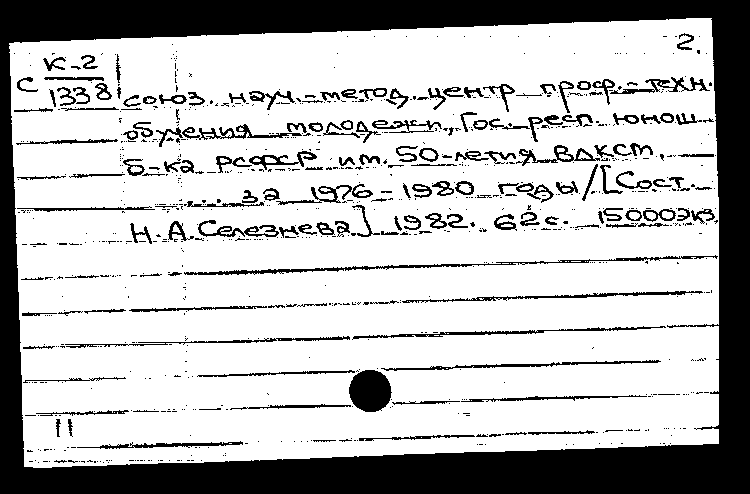 2.
С К-2
1338
союз. науч.-метод. центр проф.-техн.
обучения молодежи, Гос. респ. юнош.
б-ка РСФСР им. 50-летия ВЛКСМ.
... за 1976-1980 годы / [Сост.
Н.А. Селезнева] 1982. 62с. 15000экз
11